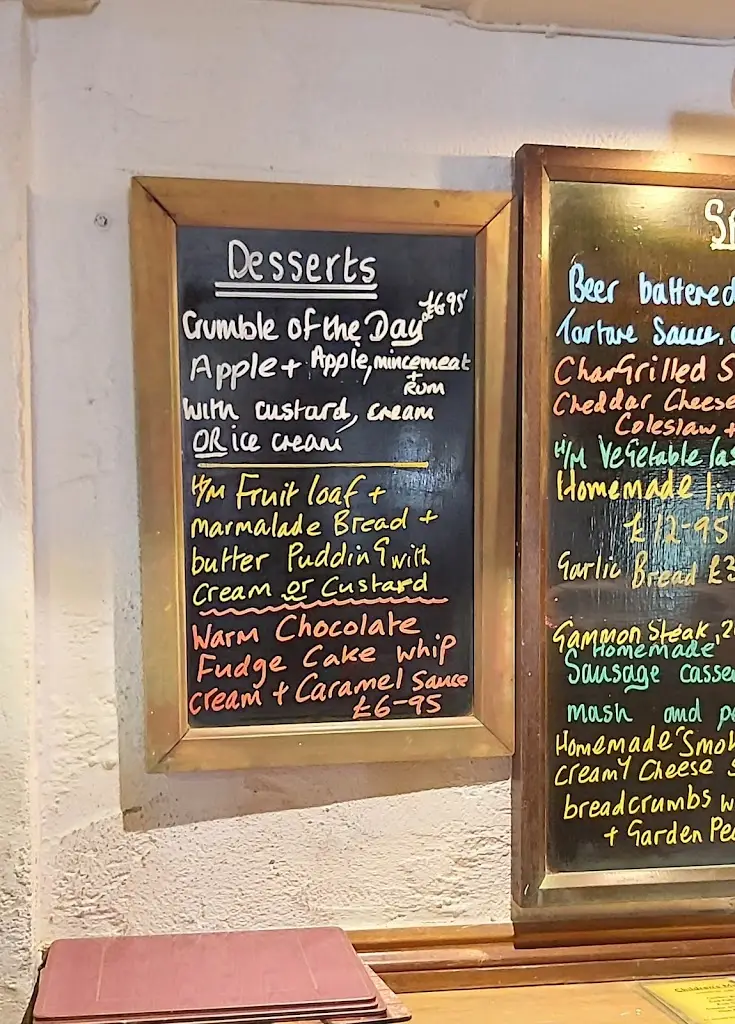 Desserts
Crumble of the Day £6.95
Apple + Apple, mincemeat
+
Rum
with custard, cream
OR ice cream
H/M Fruit loaf +
Marmalade Bread +
butter Pudding with
cream or Custard
Warm Chocolate
Fudge Cake whip
cream + Caramel Sauce
£6-95
Beer battered
Tartare Sauce,
CharGrilled S
Cheddar Cheese
Coleslaw +
H/M Vegetable las
Homemade
£12-95
Garlic Bread £3
Gammon Steak,
Homemade
Sausage casse
mash and
Homemade "Smok
Creamy Cheese
breadcrumbs w
+ Garden Pe